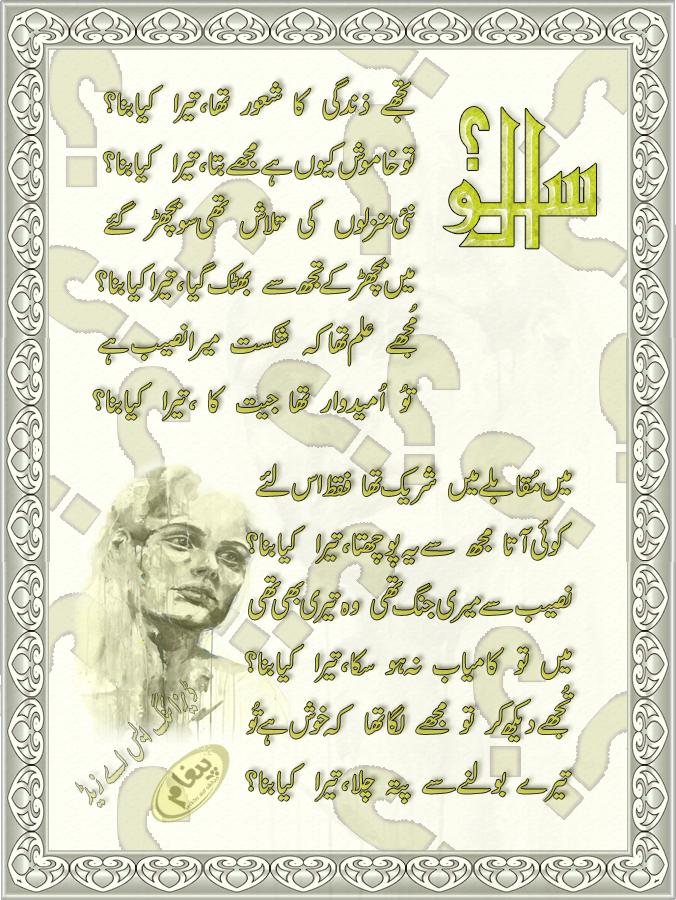 سوال؟
تجھے زندگی کا شعور تھا، تیرا کیا بنا؟
تو خاموش کیوں ہے مجھے بتا، تیرا کیا بنا؟
نئی منزلوں کی تلاش تھی سو بچھڑ گئے
میں بچھڑ کے تجھ سے بھٹک گیا، تیرا کیا بنا؟
مُجھے علم تھا کہ شکست میرا نصیب ہے
تُو اُمیدوار تھا جیت کا، تیرا کیا بنا؟
میں مُقابلے میں شریک تھا فقط اس لئے
کوئی آتا مجھ سے یہ پوچھتا، تیرا کیا بنا؟
نصیب سے میری جنگ تھی وہ تیری بھی تھی
میں تو کامیاب نہ ہو سکا، تیرا کیا بنا؟
تُجھے دیکھ کر تو مجھے لگا تھا کہ خوش ہے تُو
تیرے بولنے سے پتہ چلا، تیرا کیا بنا؟
ڈیزائننگ ایس اے زیڈ
پیغام